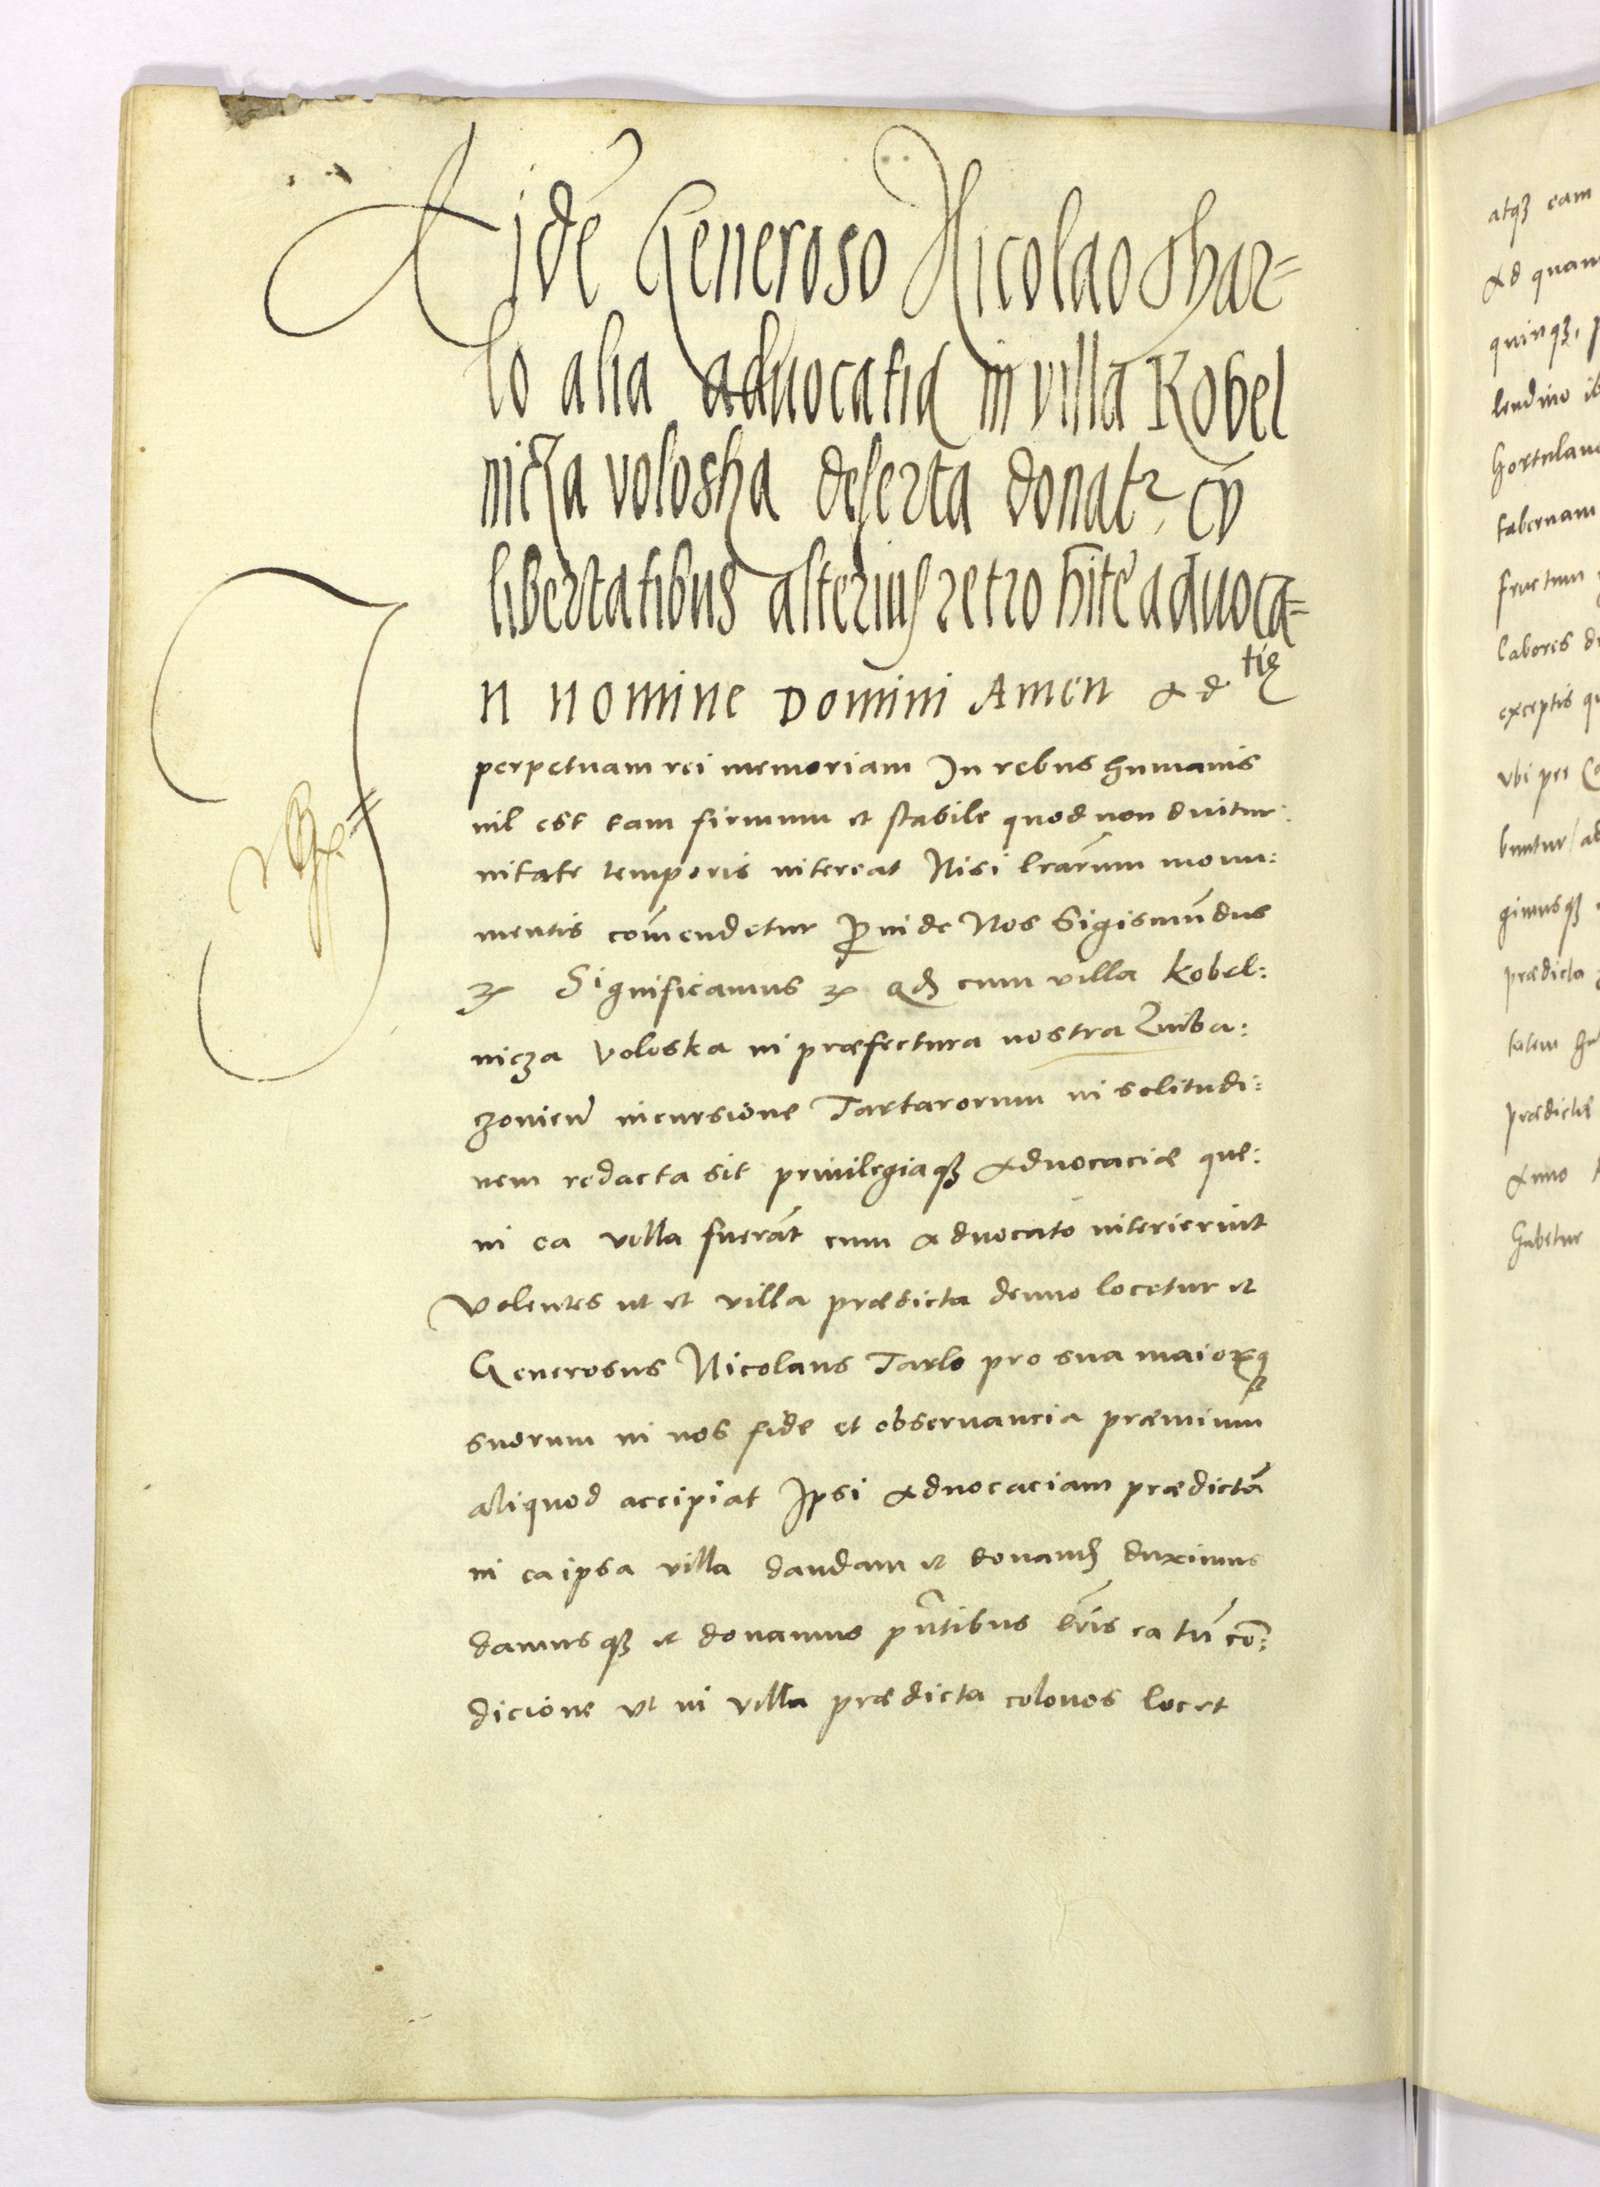 Eidē Generoso Nicolao Thar=
lo alia aduocatia in villa Kobel
nicza voloska deserta donatr cū
libertatibus alterius retro hītē aduoca=
tię
In nomine Domini Amen Ad
perpetuam rei memoriam In rebus humanis
nil est tam firmum et stabile quod non diutur:
nitate temporis intereat Nisi lrārum monu:
mentis com̄endetur Proinde Nos Sigismūdus
Significamus qd cum villa Kobel:
nicza Voloska in præfectura nostra
incursione Tartarorum in solitudi:
nem redacta sit priuilegiaqȝ Aduocaciæ quæ:
in ea villa fuerāt cum Aduocato interierint
Volentes ut et villa prædicta denuo locetur et
Generosus Nicolaus Tarlo pro sua maiorqȝ
suorum in nos fide et obseruancia præmium
aliquod accipiat Ipsi Aduocaciam prædictā
in ea ipsa villa dandam et donand duximus
damusqȝ et donamus pn̄tibus lrīs ea tn̄ con:
dicione vt in villa prædicta colonos locet
atqȝ eam
Ad quam
quinqȝ,
lendino
hortulano
tabernam
fructum
labores
exceptis
vbi per
buntur/
gimusqȝ
prædicta
tatem
prædictæ
Anno
habetur